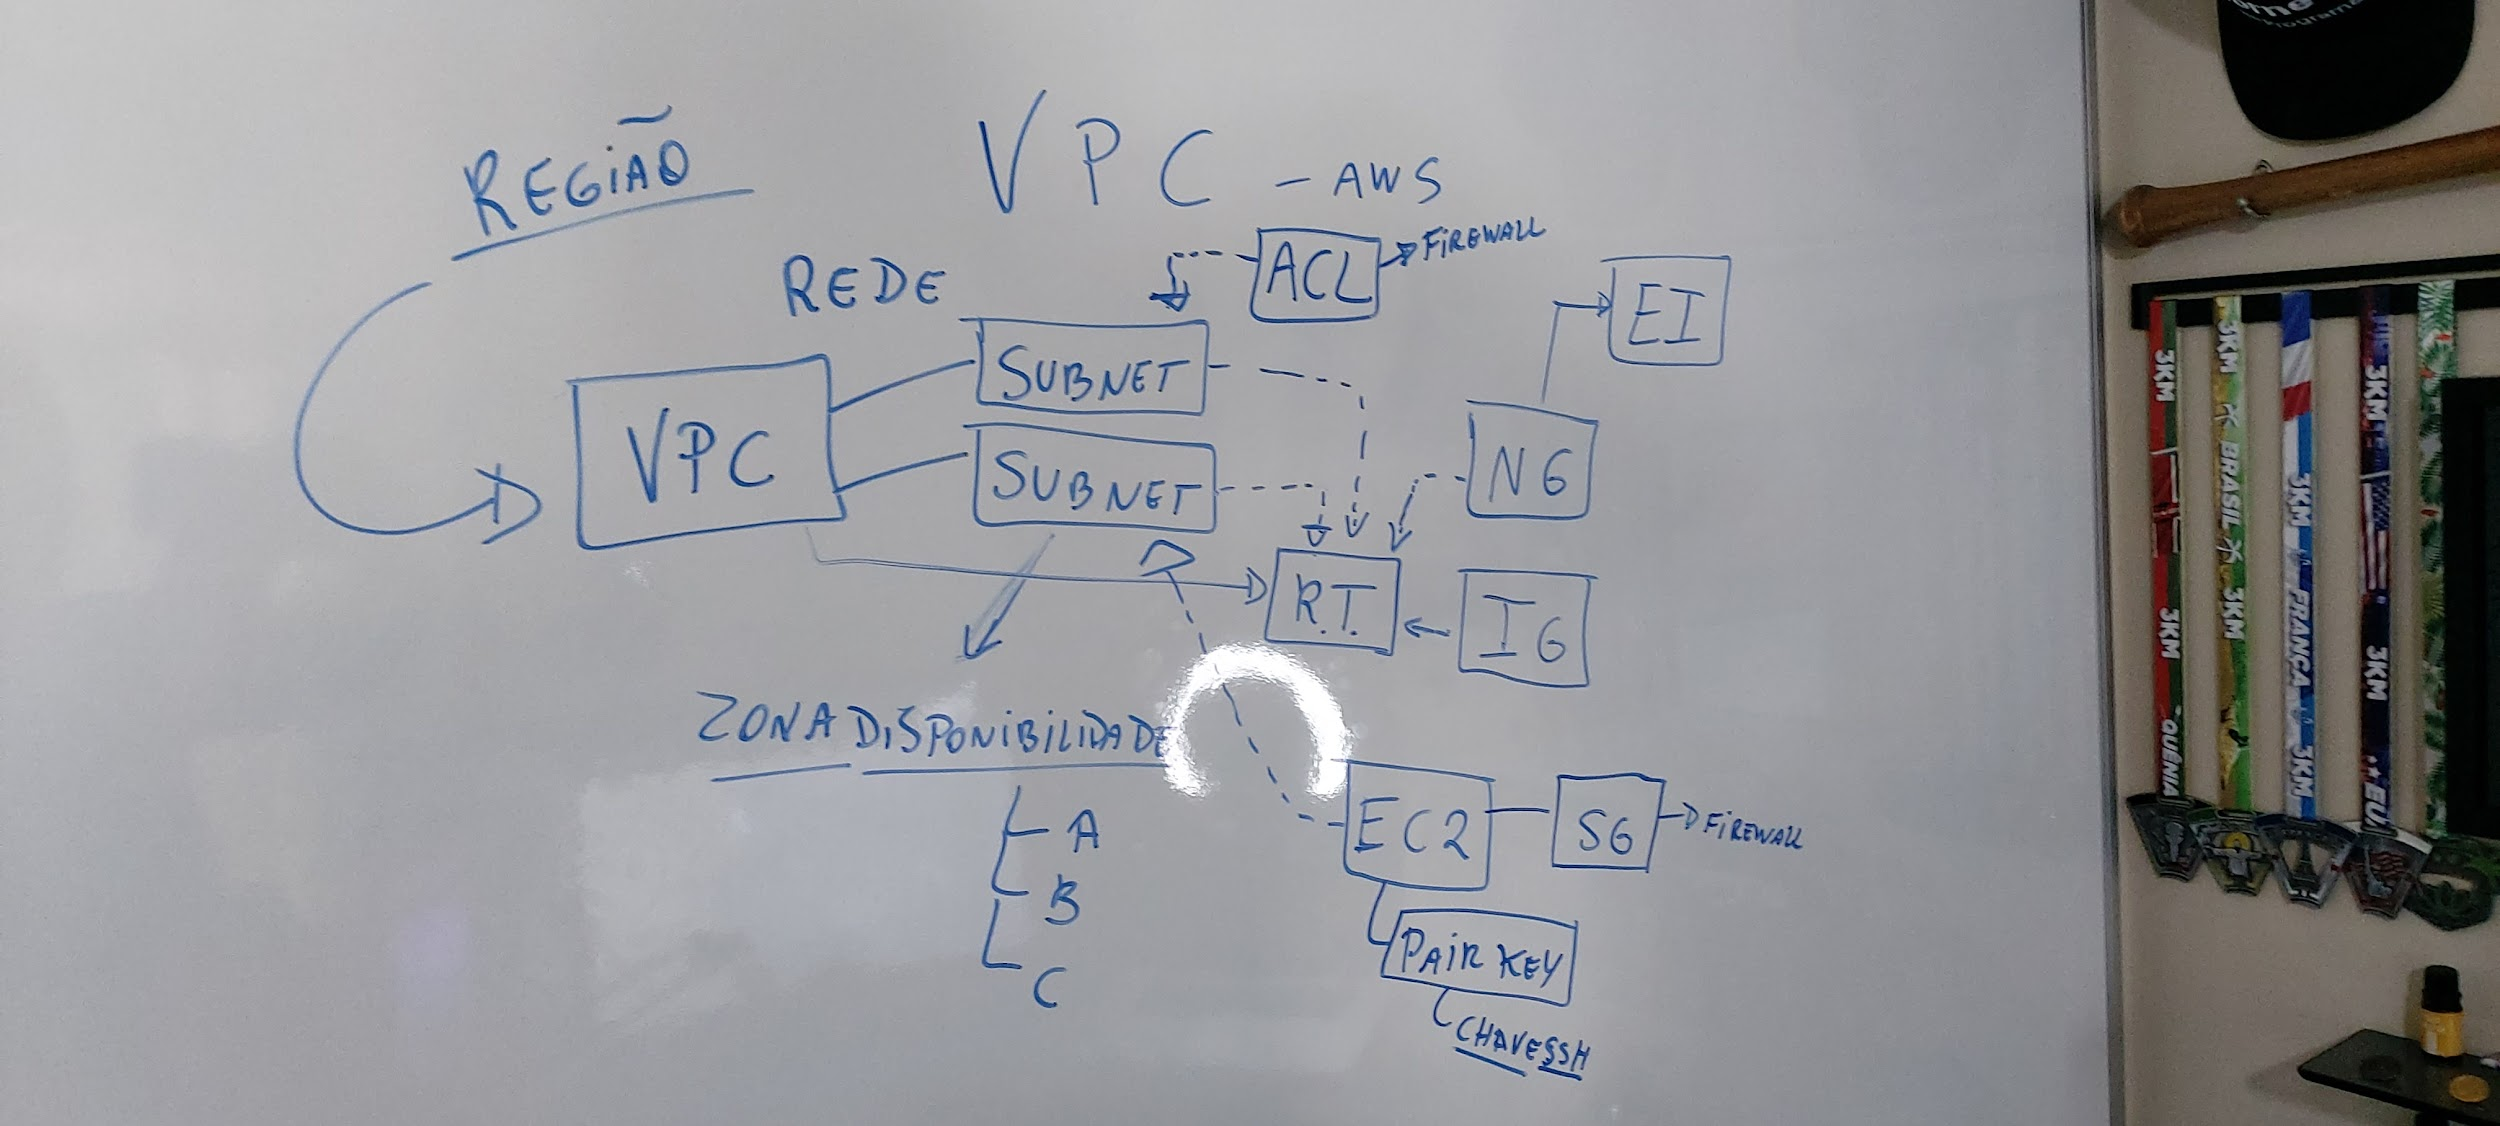 REGIÃO
VPC - AWS
REDE
ACL
FIREWALL
EI
SUBNET
VPC
SUBNET
NG
R.T.
IG
ZONA DISPONIBILIDADE
A
B
C
EC2
SG
FIREWALL
PAIR KEY
CHAVE SSH
3KM
3KM
QUÊNIA
3KM
BRASIL
3KM
3KM
FRANÇA
3KM
3KM
3KM
EUA